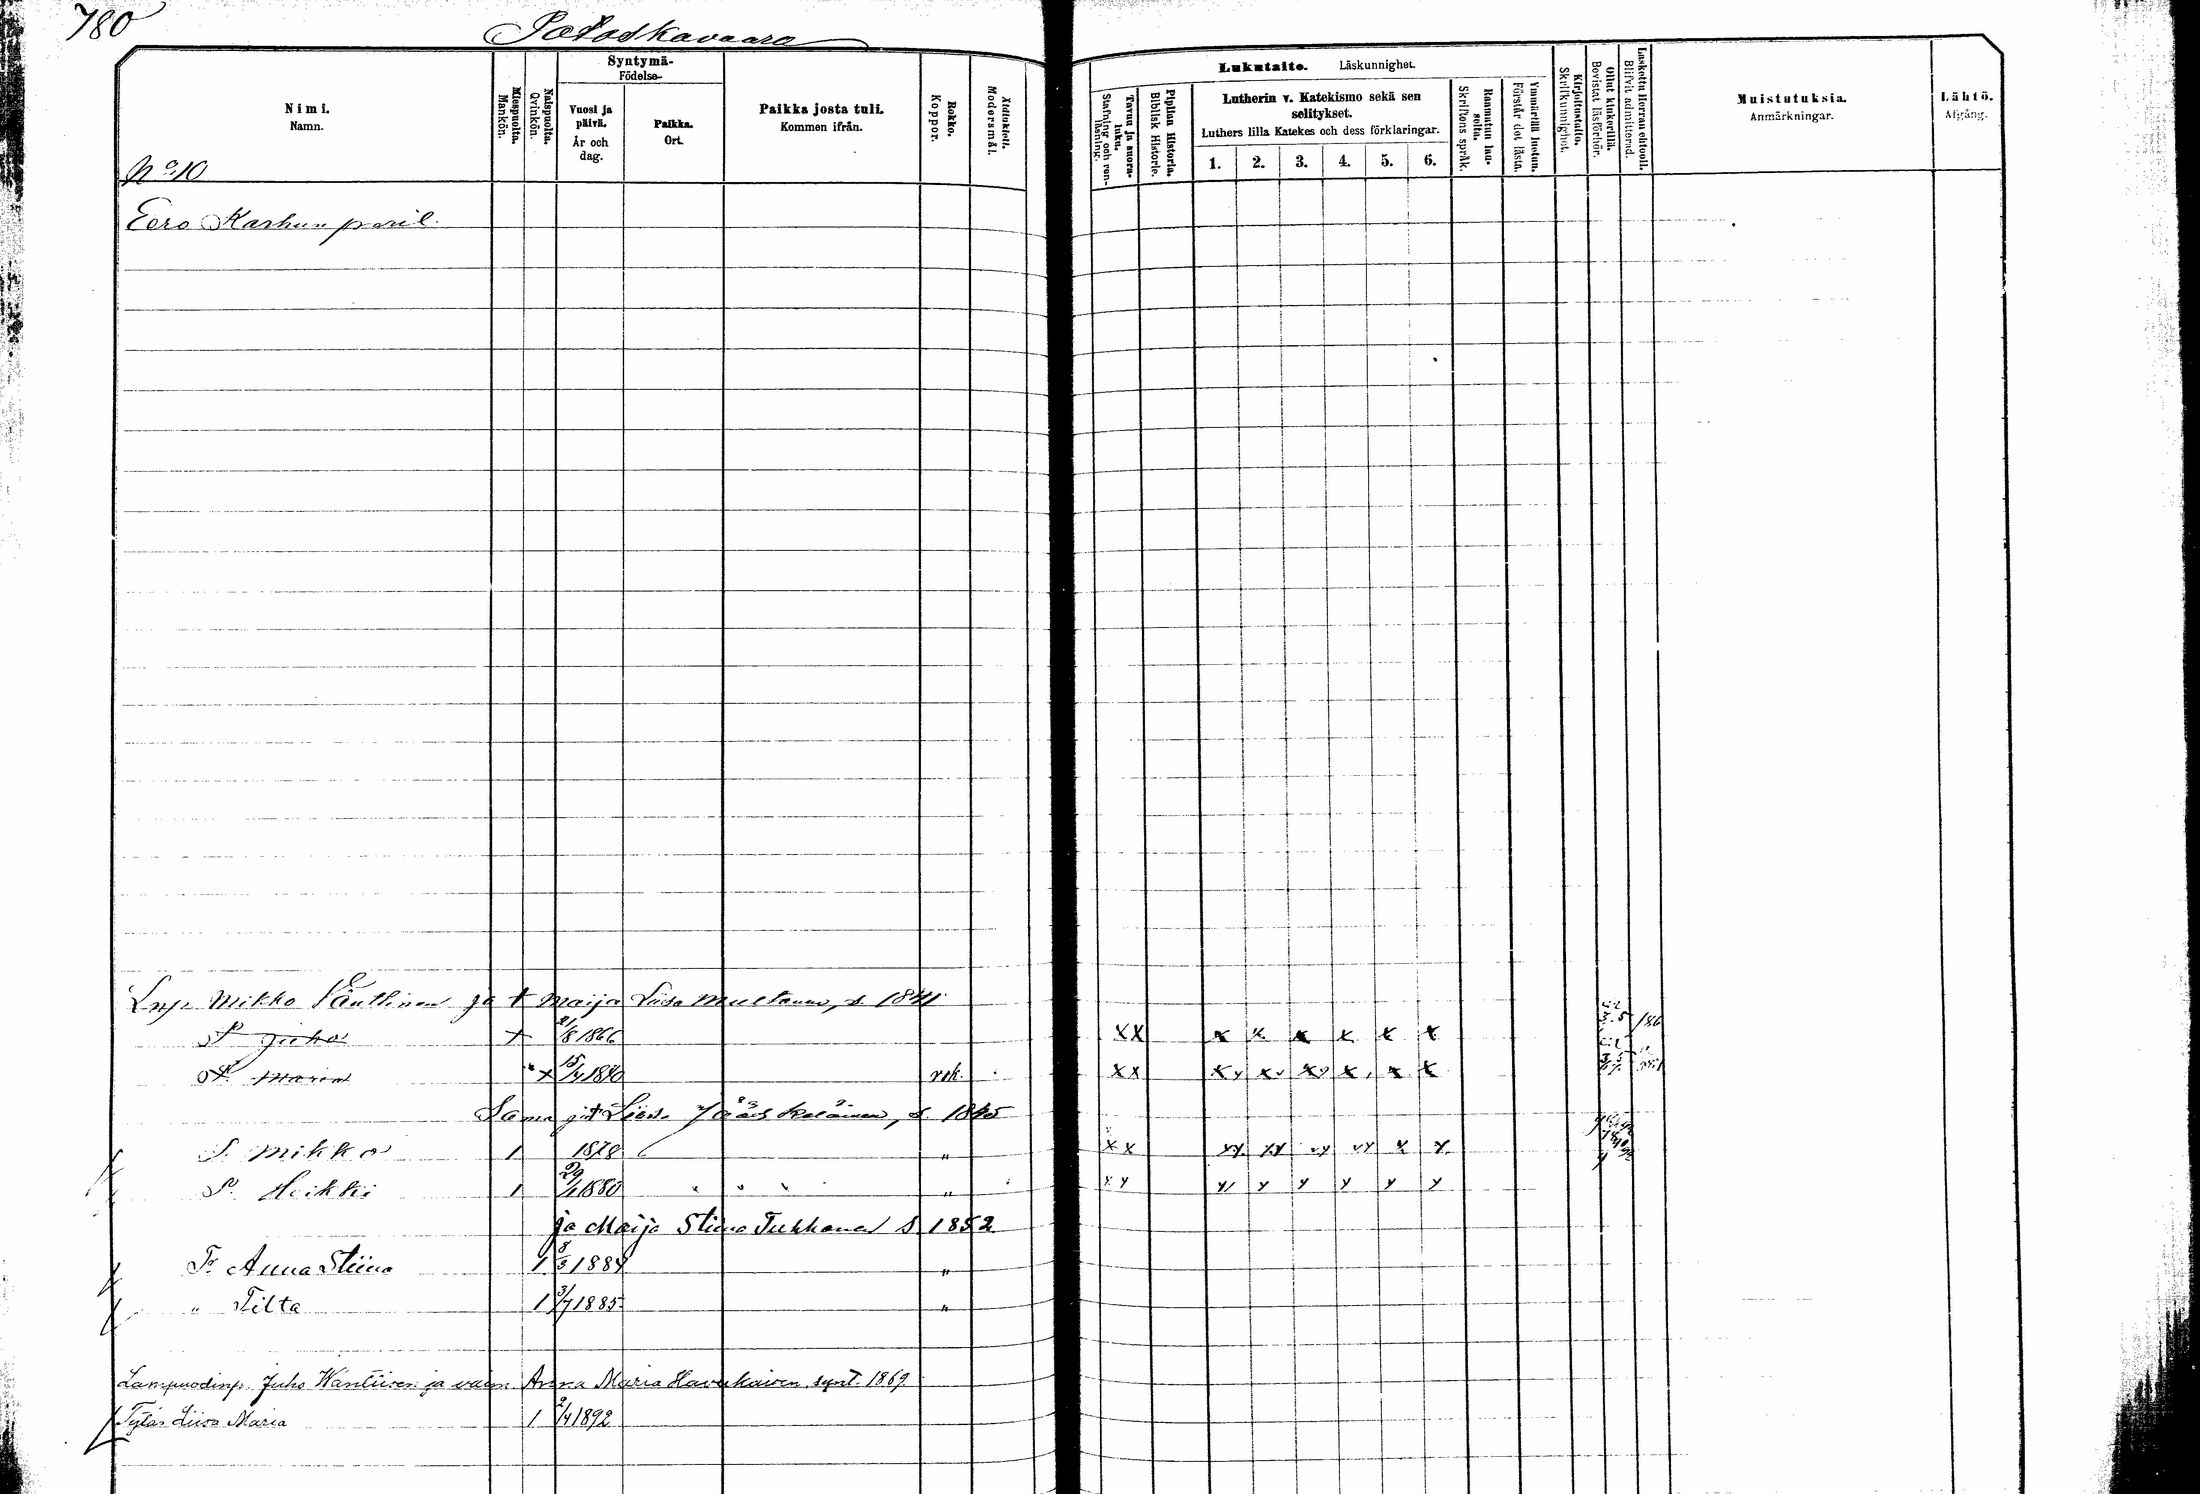 780
Potoskavaara
Nimi.
Namn.
Miespuolta.
Mankön.
Naispuolta.
Qvinkön.
Syntymä-
Födelse-
Vuosi ja päivä.
År och dag.
Paikka.
Ort.
Paikka josta tuli.
Kommen ifrån.
Rokko.
Koppor.
Äidinkieli.
Modersmål.
Lukutaito. Läskunnighet.
Tavuu ja suora-luku.
Stafning och ren-läsning.
Piplian Historia.
Biblisk Historie.
Lutherin v. Katekismo sekä sen selitykset.
Luthers lilla Katekes och dess förklaringar.
1. 2. 3. 4. 5. 6.
Raamatun lau-seita.
Skriftens språk.
Ymmärtää luetun.
Förstår det lästa.
Kirjoitustaito.
Skrifkunnighet.
Ollut kinkerillä.
Bevistat läsförhör.
Laskettu Herran ehtooll.
Blifvit admitterad.
Muistutuksia.
Anmärkningar.
Lähtö.
Afgång.
No 10
Eero Karhun peril.
Lnp Mikko ja t Maija Liisa Multanen, s. 1841
P Juho x 21/8 1866 xx x x x x x x
T. Maria x 15/4 1880 rok. xx x x x x x x
Sama ja t Liisa Jääskeläinen, s. 1845
P. Mikko 1 1878 " x x
P. Heikki 1 29/1 1880 "
ja Maija Stiina Tukkanen S 1852
T. Anna Stiina 1 8/3 1884 "
" Tilta 1 3/7 1885 "
Lampuodinp. Juho Wäntiinen ja vaim Anna Maria Haverkainen synt. 1869
Tytär Liisa Maria 1 2/4 1892